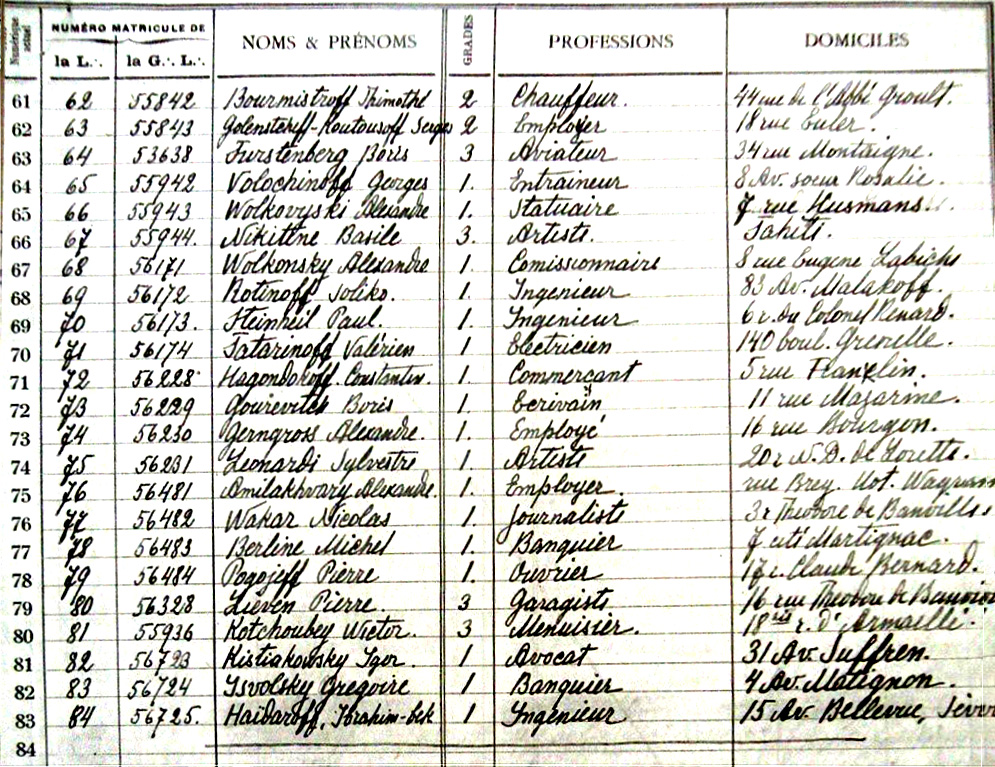 Numérique actuel NUMÉRO MATRICULE DE NOMS & PRÉNOMS GRADES PROFESSIONS DOMICILES
la L∴ la G∴ L∴
61 62 55842 Bourmistroff Thimothé 2 Chauffeur. 44 rue de l'Abbé Groult.
62 63 55843 Golenstcheff-Koutousoff Serge 2 Employer 18 rue Euler.
63 64 53638 Furstenberg Boris 3 Aviateur 34 rue Montaigne.
64 65 55942 Volochinoff Georges 1. Entraineur 8 Av. soeur Rosalie.
65 66 55943 Wolkovyski Alexandre 1. Statuaire 7 rue Husmans.
66 67 55944. Nikittne Basile 3. Artiste. Tahiti.
67 68 56171 Wolkonsky Alexandre 1. Comissionnaire 8 rue Eugene Labiche
68 69 56172 Rotinoff Soliko. 1. Ingenieur 83 Av. Malakoff.
69 70 56173. Steinheil Paul. 1. Ingenieur 6 r. du Colonel Renard.
70 71 56174 Tatarinoff Valérien 1. Electricien 140 boul. Grenelle.
71 72 56228 Hagondokoff Constantin. 1. Commerçant 5 rue Franklin.
72 73 56229 Gourevitch Boris 1. Ecrivain 11 rue Mazarine.
73 74 56230 Gerngross Alexandre. 1. Employé 16 rue Bourgon.
74 75 56231 Leonardi Sylvestre 1. Artiste 20 r N.D. de Lorette.
75 76 56481 Amilakhvary Alexandre. 1. Employer. rue Brey. Hot. Wagram
76 77 56482 Wakar Nicolas 1. Journaliste 3 r Theodore de Banville
77 78 56483 Berline Michel 1. Banquier 7 cité Martignac.
78 79 56484 Pogojeff Pierre 1. Ouvrier 17 r. Claude Bernard.
79 80 56328 Lieven Pierre. 3 Garagiste 16 rue Theodore de
80 81 55936 Kotchoubey Wictor. 3 Menuisier. 18 bis r. D'Armaillé.
81 82 56723 Kistiakowsky Igor. 1 Avocat 31 Av. Suffren.
82 83 56724 Isvolsky Gregoire 1 Banquier 4 Av. Matignon.
83 84 56725. Haidaroff, Ibrahim-Bek 1 Ingenieur 15 Av. Bellevue,
84